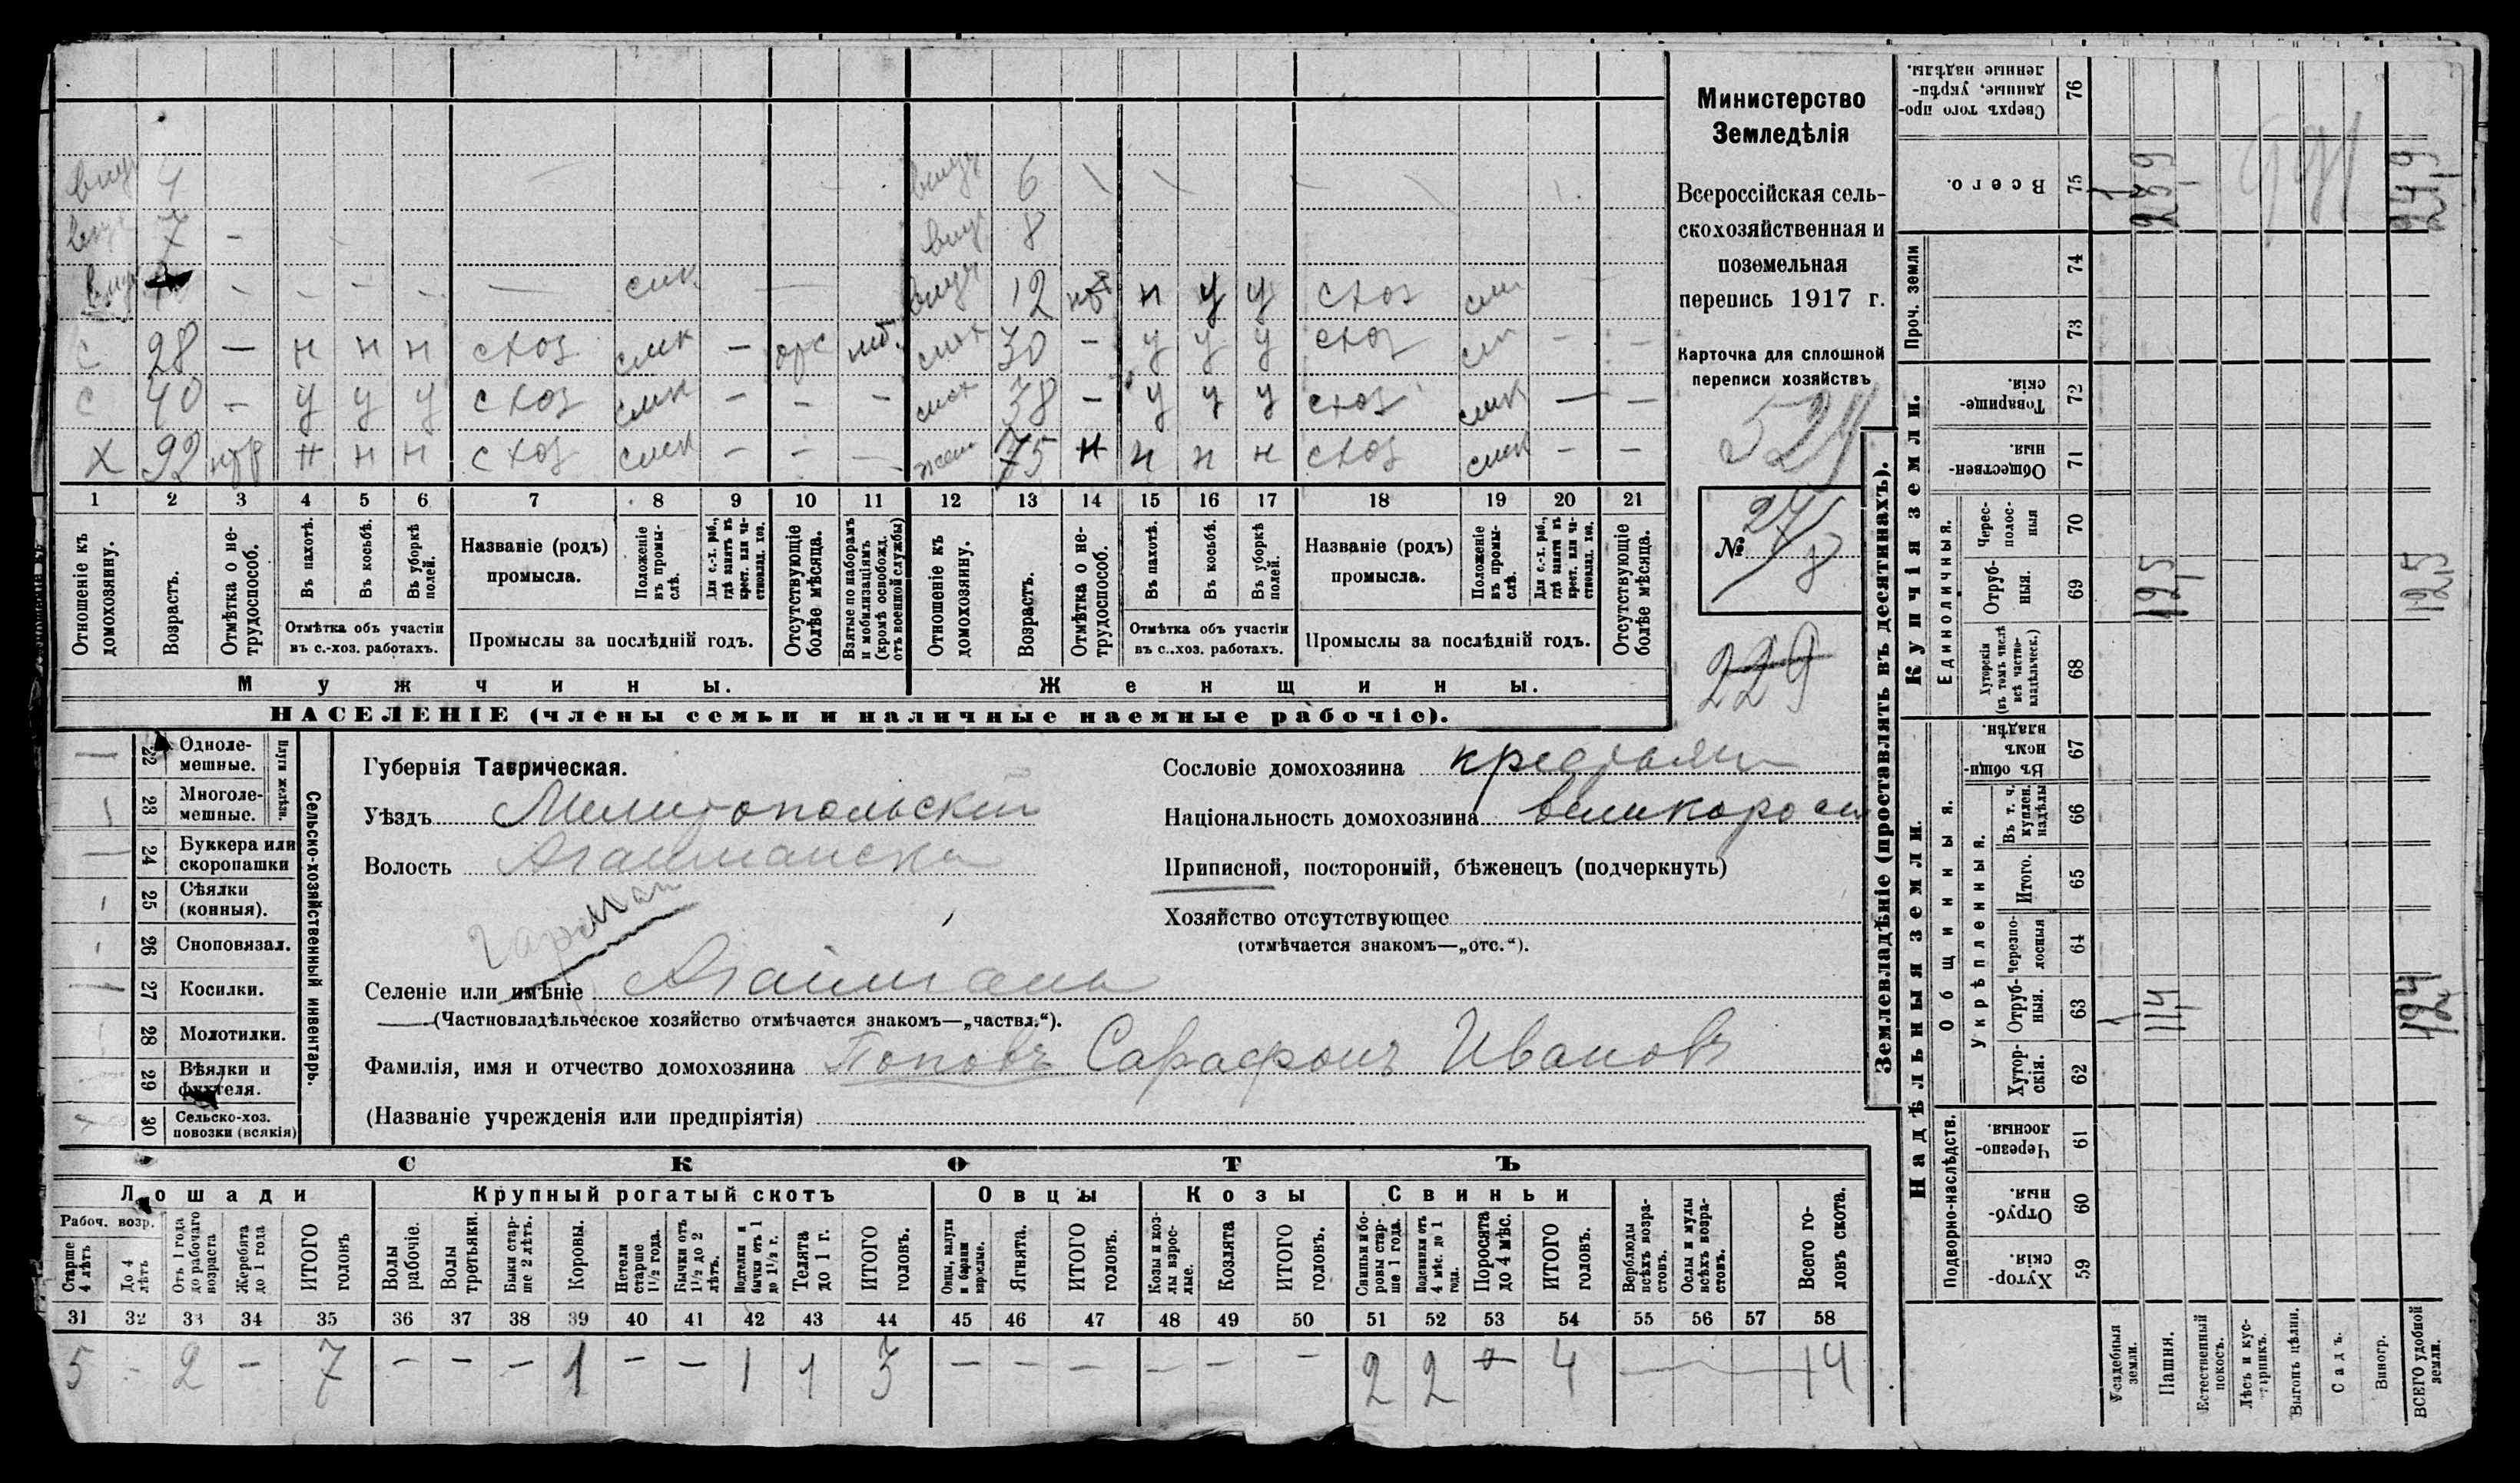 Министерство
Земледѣлія
Всероссійская сель-
скохозяйственная и
поземельная
перепись 1917 г.
Карточка для сплошной
переписи хозяйствъ
№
229
4 6
7 — 8
— — — — — смк — 12 н у у схоз
С 28 — н н н схоз смк — 30 — у у у схоз — —
С 40 — у у у схоз смк — — — 38 — у у у схоз смк — —
Х 92 нтр н н н схоз смк — — — жена 75 н н н н схоз смк — —
1 2 3 4 5 6 7 8 9 10 11 12 13 14 15 16 17 18 19 20 21
Отношеніе къ домохозяину.
Возрастъ.
Отмѣтка о не-трудоспособ.
Въ пахотѣ.
Въ косьбѣ.
Въ уборкѣ полей.
Отмѣтка объ участіи
въ с.-хоз. работахъ.
Названіе (родъ)
промысла.
Положеніе въ промы-слѣ.
Для с.-х. раб., гдѣ занятъ въ крест. или ча-стновлад. хоз.
Промыслы за послѣдній годъ.
Отсутствующіе болѣе мѣсяца.
Взятые по наборамъ и мобилизаціямъ (кромѣ освобожд. отъ военной службы)
Отношеніе къ домохозяину.
Возрастъ.
Отмѣтка о не-трудоспособ.
Въ пахотѣ.
Въ косьбѣ.
Въ уборкѣ полей.
Отмѣтка объ участіи
въ с..хоз. работахъ.
Названіе (родъ)
промысла.
Положеніе въ промы-слѣ.
Для с.-х. раб., гдѣ занята въ крест. или ча-стновлад. хоз.
Промыслы за послѣдній годъ.
Отсутствующіе болѣе мѣсяца.
Мужчины.
Женщины.
НАСЕЛЕНІЕ (члены семьи и наличные наемные рабочіе).
Сельско-хозяйственный инвентарь.
Плуги желѣзн.
— 22 Одноле-мешные.
23 Многоле-мешные.
— 24 Буккера или скоропашки
25 Сѣялки (конныя).
26 Сноповязал.
27 Косилки.
28 Молотилки.
29 Вѣялки и фухтеля.
30 Сельско-хоз. повозки (всякія)
Губернія Таврическая.
Уѣздъ Мелитопольскій
Волость Агайманска
Селеніе или имѣніе Агаймань
(Частновладѣльческое хозяйство отмѣчается знакомъ—„частвл.“).
Фамилія, имя и отчество домохозяина Поповъ Сарафонъ Ивановъ
(Названіе учрежденія или предпріятія)
Сословіе домохозяина крестьян
Національность домохозяина великоросс
Приписной, посторонній, бѣженецъ (подчеркнуть)
Хозяйство отсутствующее
(отмѣчается знакомъ—„отс.“).
СКОТЪ
Лошади
Крупный рогатый скотъ
Овцы
Козы
Свиньи
Рабоч. возр.
Старше 4 лѣтъ
До 4 лѣтъ
Отъ 1 года до рабочаго возраста
Жеребята до 1 года
ИТОГО головъ
Волы рабочіе.
Волы третьяки.
Быки стар-ше 2 лѣтъ.
Коровы.
Нетели старше 1½ года.
Бычки отъ 1½ до 2 лѣтъ.
Подтелки и бычки отъ 1 до 1½ г.
Телята до 1 г.
ИТОГО головъ.
Овцы, валухи и бараны взрослые.
Ягнята.
ИТОГО головъ.
Козы и коз-лы взрос-лые.
Козлята
ИТОГО головъ.
Свиньи и бо-ровы стар-ше 1 года.
Подсвинки отъ 4 мѣс. до 1 года.
Поросята до 4 мѣс.
ИТОГО головъ.
Верблюды всѣхъ возра-стовъ.
Ослы и мулы всѣхъ возра-стовъ.
Всего го-ловъ скота.
31 32 33 34 35 36 37 38 39 40 41 42 43 44 45 46 47 48 49 50 51 52 53 54 55 56 57 58
5 - 2 — 7 — — — 1 — — 1 1 3 — — — — — — 2 2 4 14
Землевладѣніе (проставлять въ десятинахъ).
Надѣльныя земли.
Купчія земли.
Проч. земли
Подворно-наслѣдств.
Общинныя.
Укрѣпленныя.
Единоличныя.
Сверхъ того про-данные, укрѣп-ленные надѣлы. 76
Всего. 75
74
73
Товарище-скія. 72
Обществен-ныя. 71
Черес-полос-ныя 70
Отруб-ныя. 69
Хуторскія (въ томъ числѣ всѣ частно-владѣльческ.) 68
Въ общи-номъ владѣн. 67
Въ т. ч. куплен. надѣлы 66
Итого. 65
Черезпо-лосныя 64
Отруб-ныя. 63
Хутор-скія. 62
Черезпо-лосныя. 61
Отруб-ныя. 60
Хутор-скія. 59
Усадебныя земли.
Пашня.
Естественный покосъ.
Лѣсъ и кус-тарникъ.
Выгонъ цѣлин.
Садъ.
Виногр.
ВСЕГО удобной земли.
1 239
249
125
125
1 114
124